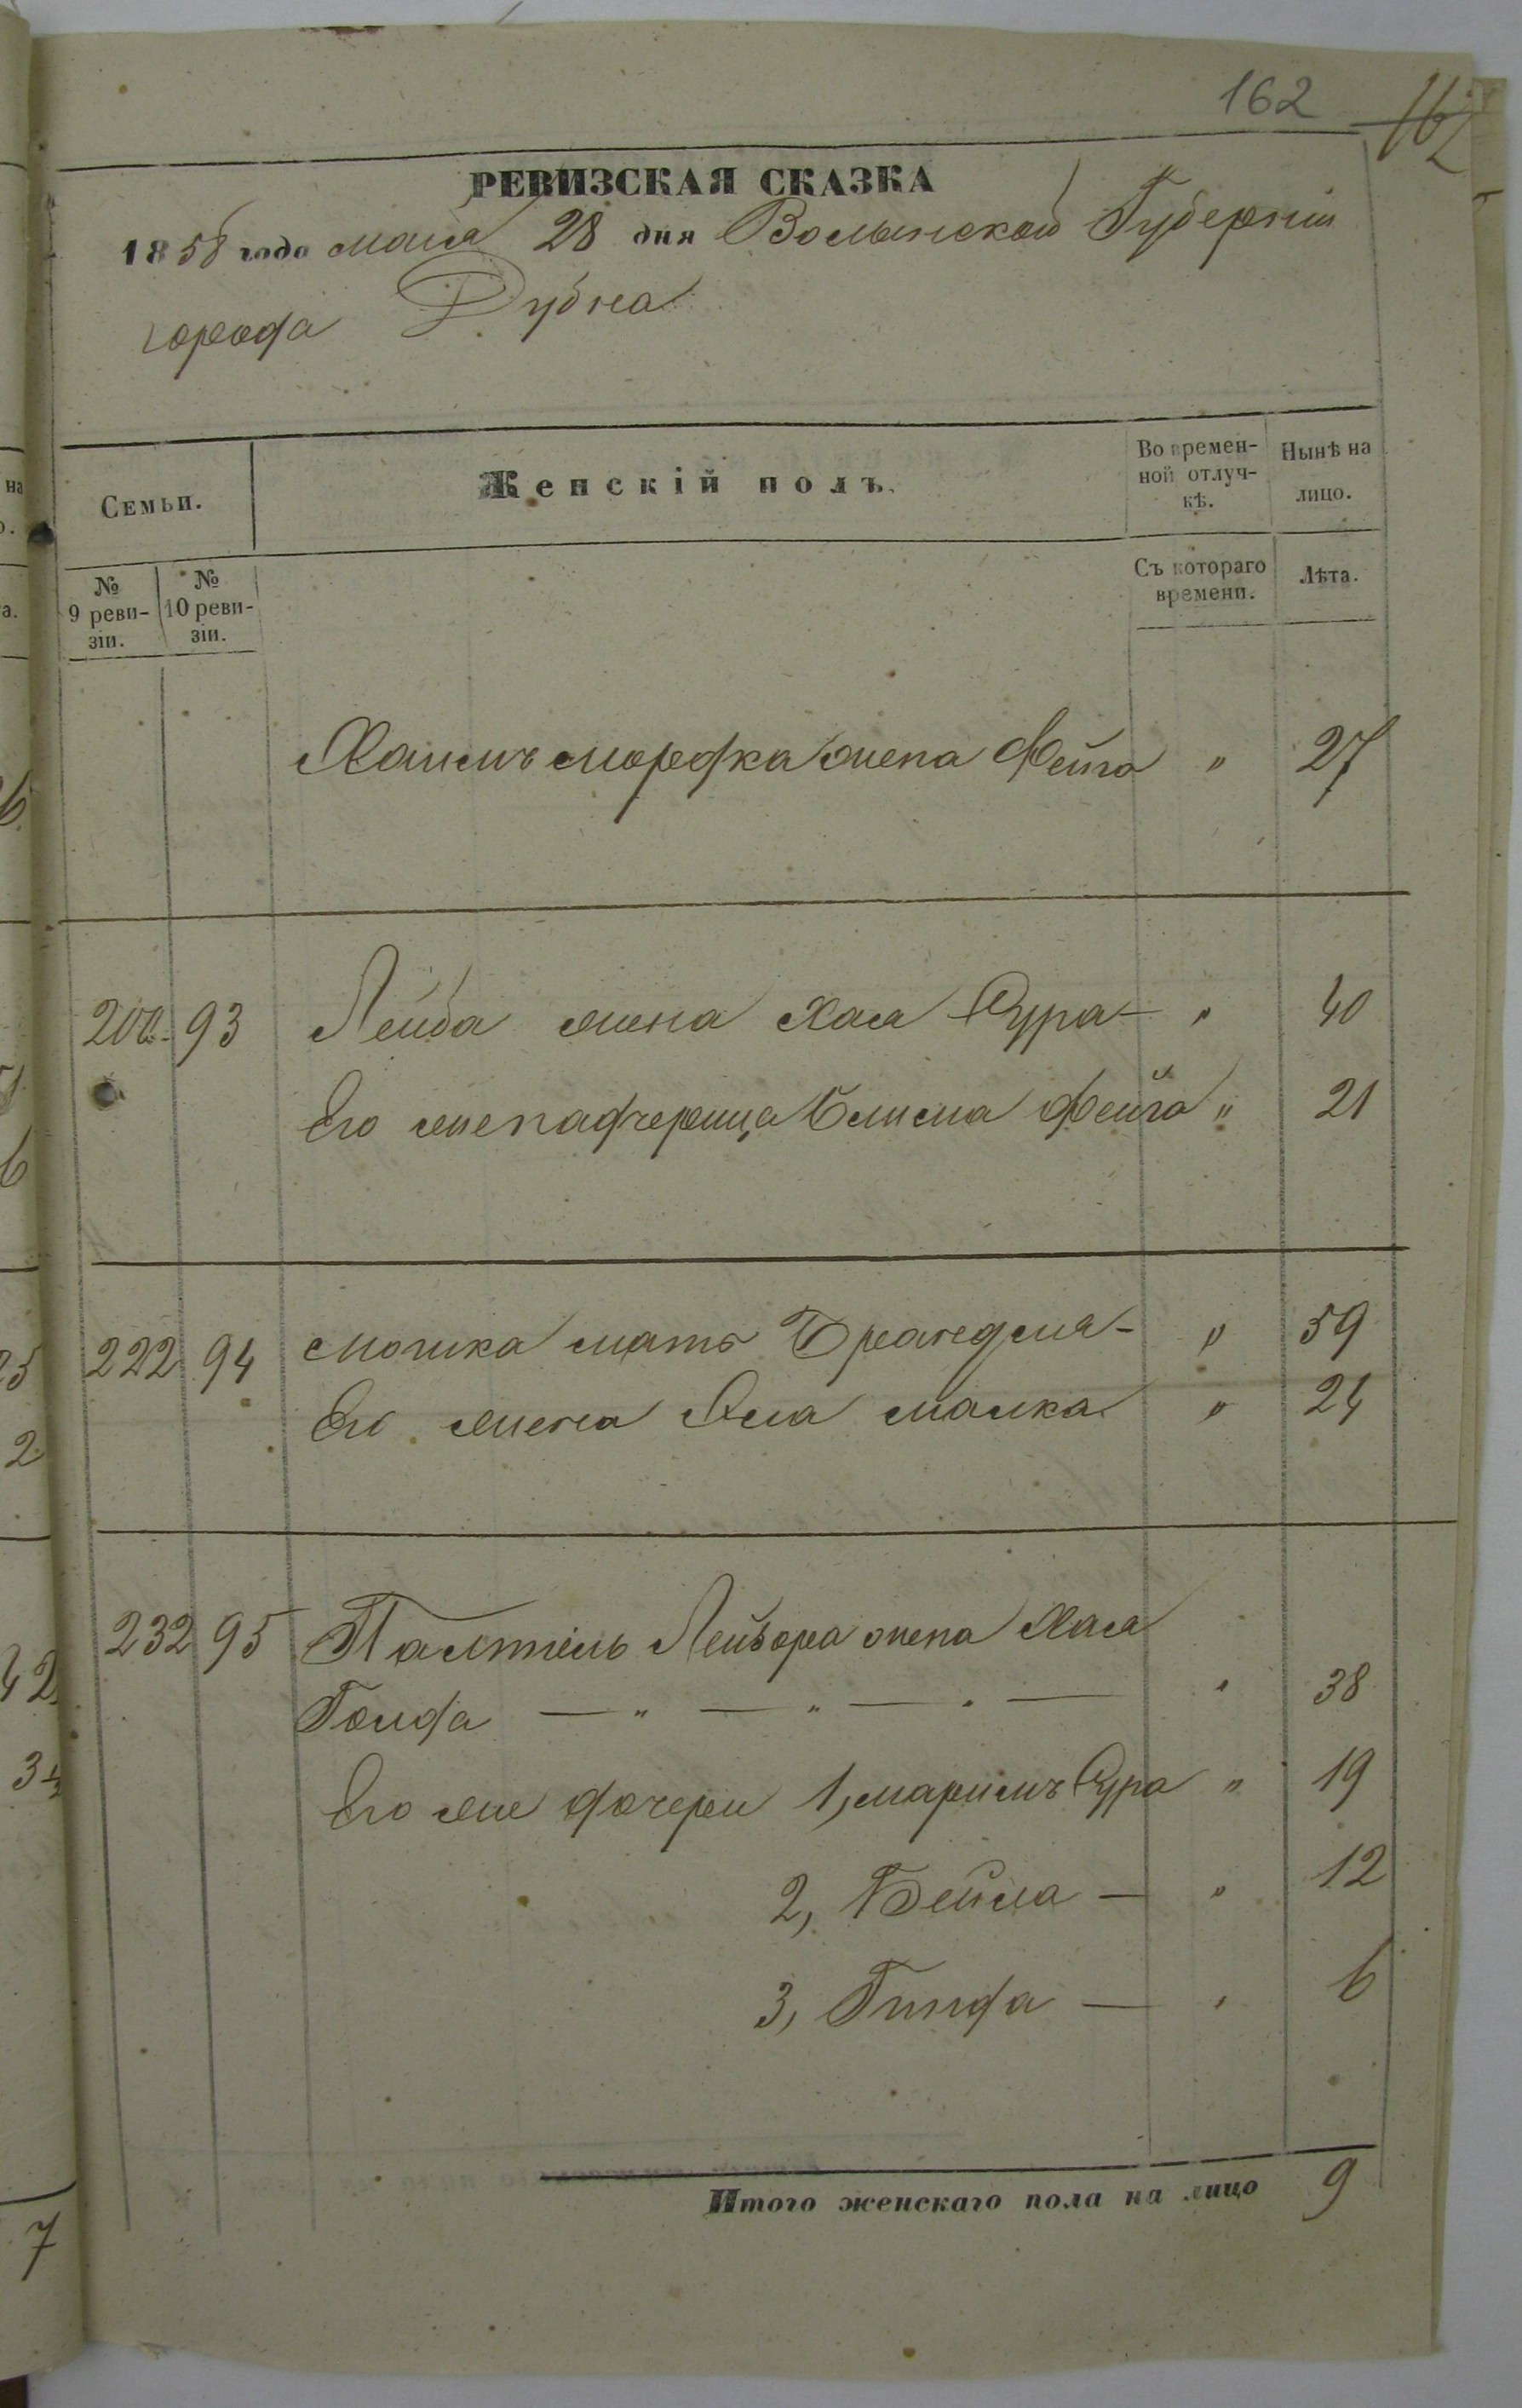 162
162
РЕВИЗСКАЯ СКАЗКА
1858 года мая 28 дня Волынской Губерніи
города Дубна
Семьи. Женскій полъ. Во времен-ной отлуч-кѣ. Нынѣ на лицо.
№ 9 реви-зіи. № 10 реви-зіи. Съ котораго времени. Лѣта.
Хаимъ мордка жена Фейга " 27
93 Лейба жена Хая Сура - " 40
Его же падчерица Блима Фейга " 21
222 94 Мошка мать Брандля - " 59
Его жена малка " 24
232 95 Жена Хая
Голда — " — " — " — " 38
Его же дочери 1, маримъ Сура " 19
2, Бейла — " 12
3, Гинда — " 6
Итого женскаго пола на лицо 9